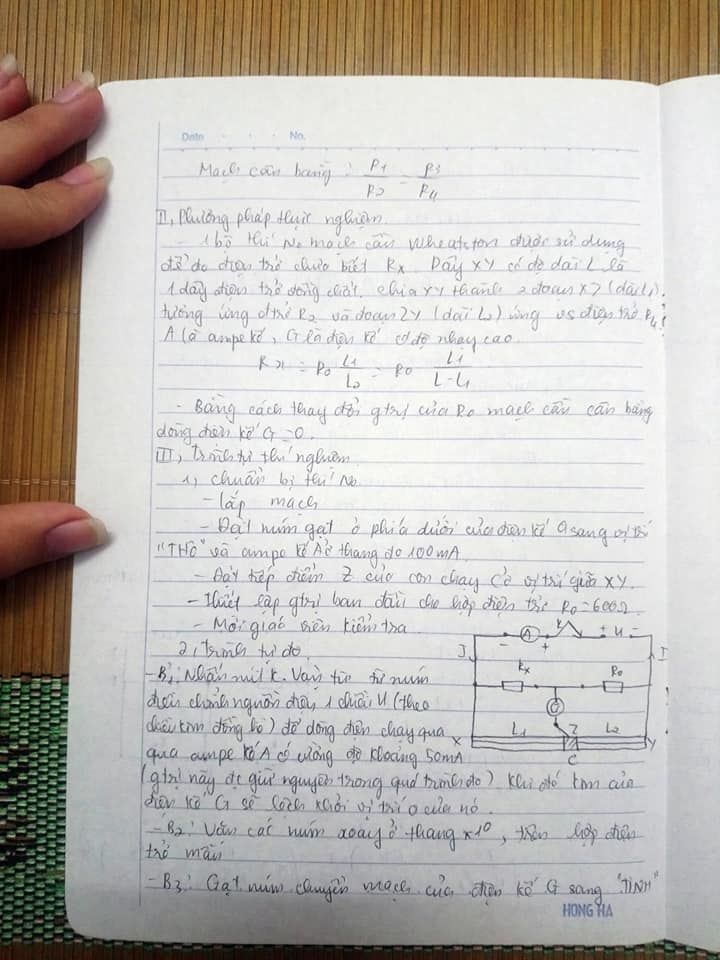 Date . . . No.
Mạch cân bằng : R1/R2 = R3/R4
II, Phương pháp thực nghiệm
- 1 bộ thí No mạch cầu Wheatston được sử dụng
để đo điện trở chưa biết Rx. Dây XY có độ dài L là
1 dây điện trở đồng chất. chia XY thành 2 đoạn XZ (dài L1)
tương ứng đ trở R2 và đoạn ZY (dài L2) ứng vs điện trở R4
A là ampe kế, G là điện kế có độ nhạy cao.
Rx = Ro L1/L2 = Ro L1/L-L1
- Bằng cách thay đổi gtrị của Ro mạch cầu cân bằng
dòng điện kế G = 0.
III, trình tự thí nghiệm
1, chuẩn bị thí No
- lắp mạch
- Đặt núm gạt ở phía dưới của điện kế G sang vị trí
"THÔ" và ampe kế A ở thang đo 100mA
- Đặt tiếp điểm Z của con chạy C ở vị trí giữa XY.
- thiết lập gtrị ban đầu cho hộp điện trở Ro = 600Ω
- Mời giáo viên kiểm tra.
2, trình tự đo
- B1: Nhấn nút K. Vặn từ từ núm
điều chỉnh nguồn điện 1 chiều U (theo
chiều kim đồng hồ) để dòng điện chạy qua
qua ampe kế A có cường độ khoảng 50mA
(gtrị này đc giữ nguyên trong quá trình đo) khi đó kim của
điện kế G sẽ lệch khỏi vị trí 0 của nó.
- B2: Vặn các núm xoáy ở thang x10, trên hộp điện
trở mẫu
- B3: Gạt núm chuyển mạch của điện kế G sang "TINH"
K
- A + + U -
I I
Rx Ro
G
L1 Z L2
X C Y
HONG HA